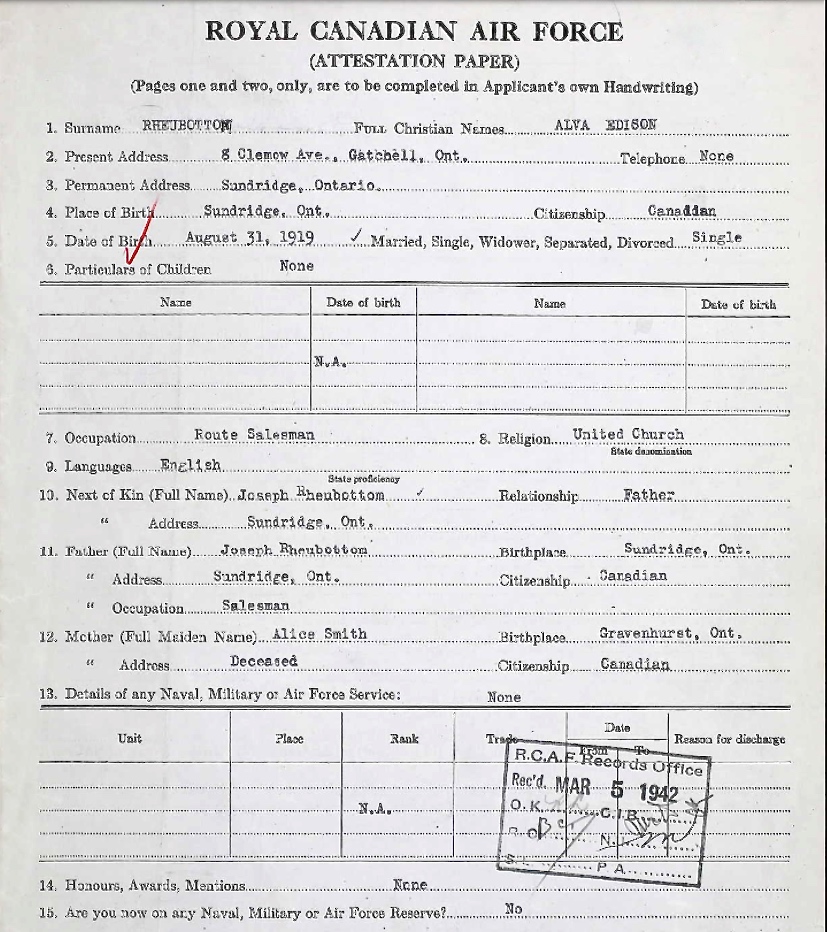 ROYAL CANADIAN AIR FORCE
(ATTESTATION PAPER)
(Pages one and two, only, are to be completed in Applicant's own Handwriting)
1. Surname RHEUBOTTOM Full Christian Names ALVA EDISON
2. Present Address 8 Clemow Ave., Gatchell, Ont. Telephone None
3. Permanent Address Sundridge, Ontario.
4. Place of Birth Sundridge, Ont. Citizenship Canadian
5. Date of Birth August 31, 1919 ✓ Married, Single, Widower, Separated, Divorced Single
6. Particulars of Children None
Name Date of birth Name Date of birth
N.A.
7. Occupation Route Salesman 8. Religion United Church
State denomination
9. Languages English
State proficiency
10. Next of Kin (Full Name) Joseph Rheubottom ✓ Relationship Father
" Address Sundridge, Ont.
11. Father (Full Name) Joseph Rheubottom Birthplace Sundridge, Ont.
" Address Sundridge, Ont. Citizenship Canadian
" Occupation Salesman
12. Mother (Full Maiden Name) Alice Smith Birthplace Gravenhurst, Ont.
" Address Deceased Citizenship Canadian
13. Details of any Naval, Military or Air Force Service: None
Unit Place Rank Trade Date Reason for discharge
From To
R.C.A.F. Records Office
Rec'd. MAR 5 1942
N.A. O.K. C.I.B.
N.
S. P.A.
14. Honours, Awards, Mentions None
15. Are you now on any Naval, Military or Air Force Reserve? No